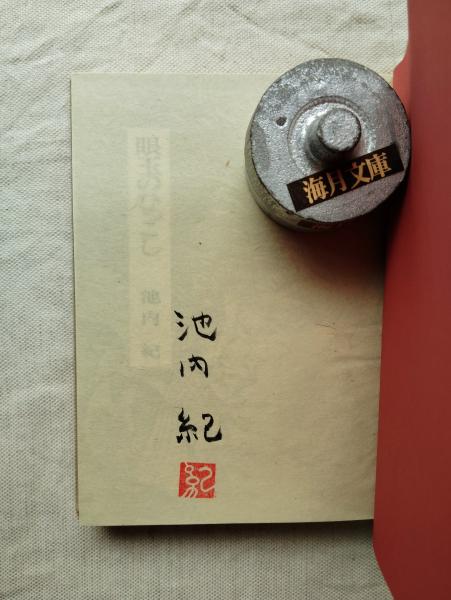 海月文庫
眼玉のひっこし
池内 紀
池内 紀
紀